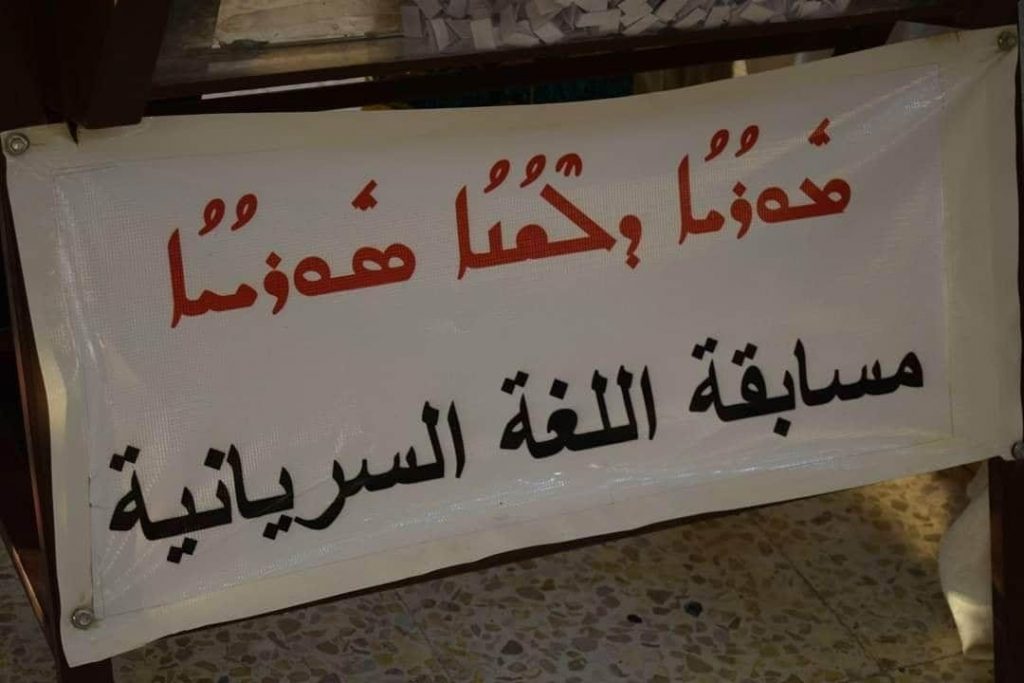 ܕܠܶܫܳܢܳܐ ܣܽܘܪܝܳܝܳܐ
مسابقة اللغة السريانية